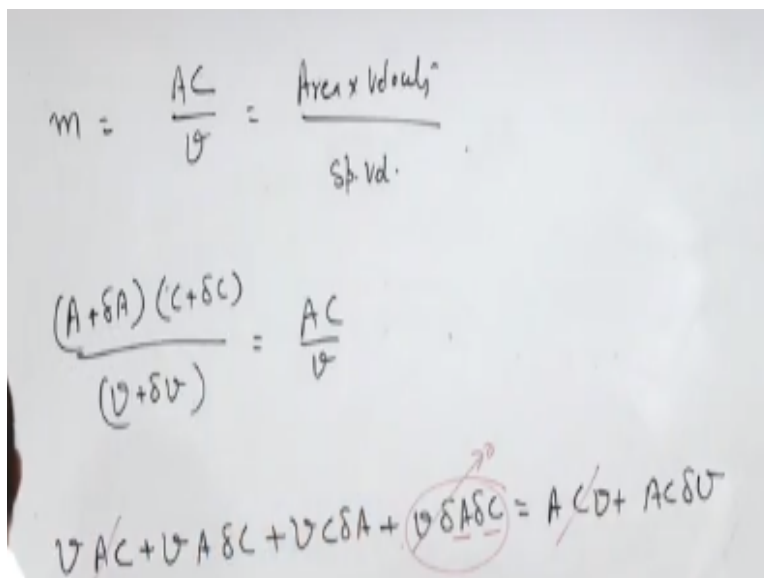 m = AC / v = Area x Velocity / Sp. Vol.
(A+δA) (C+δC) / (v+δv) = AC / v
vAC + vAδC + vCδA + vδAδC = ACv + ACδv
0